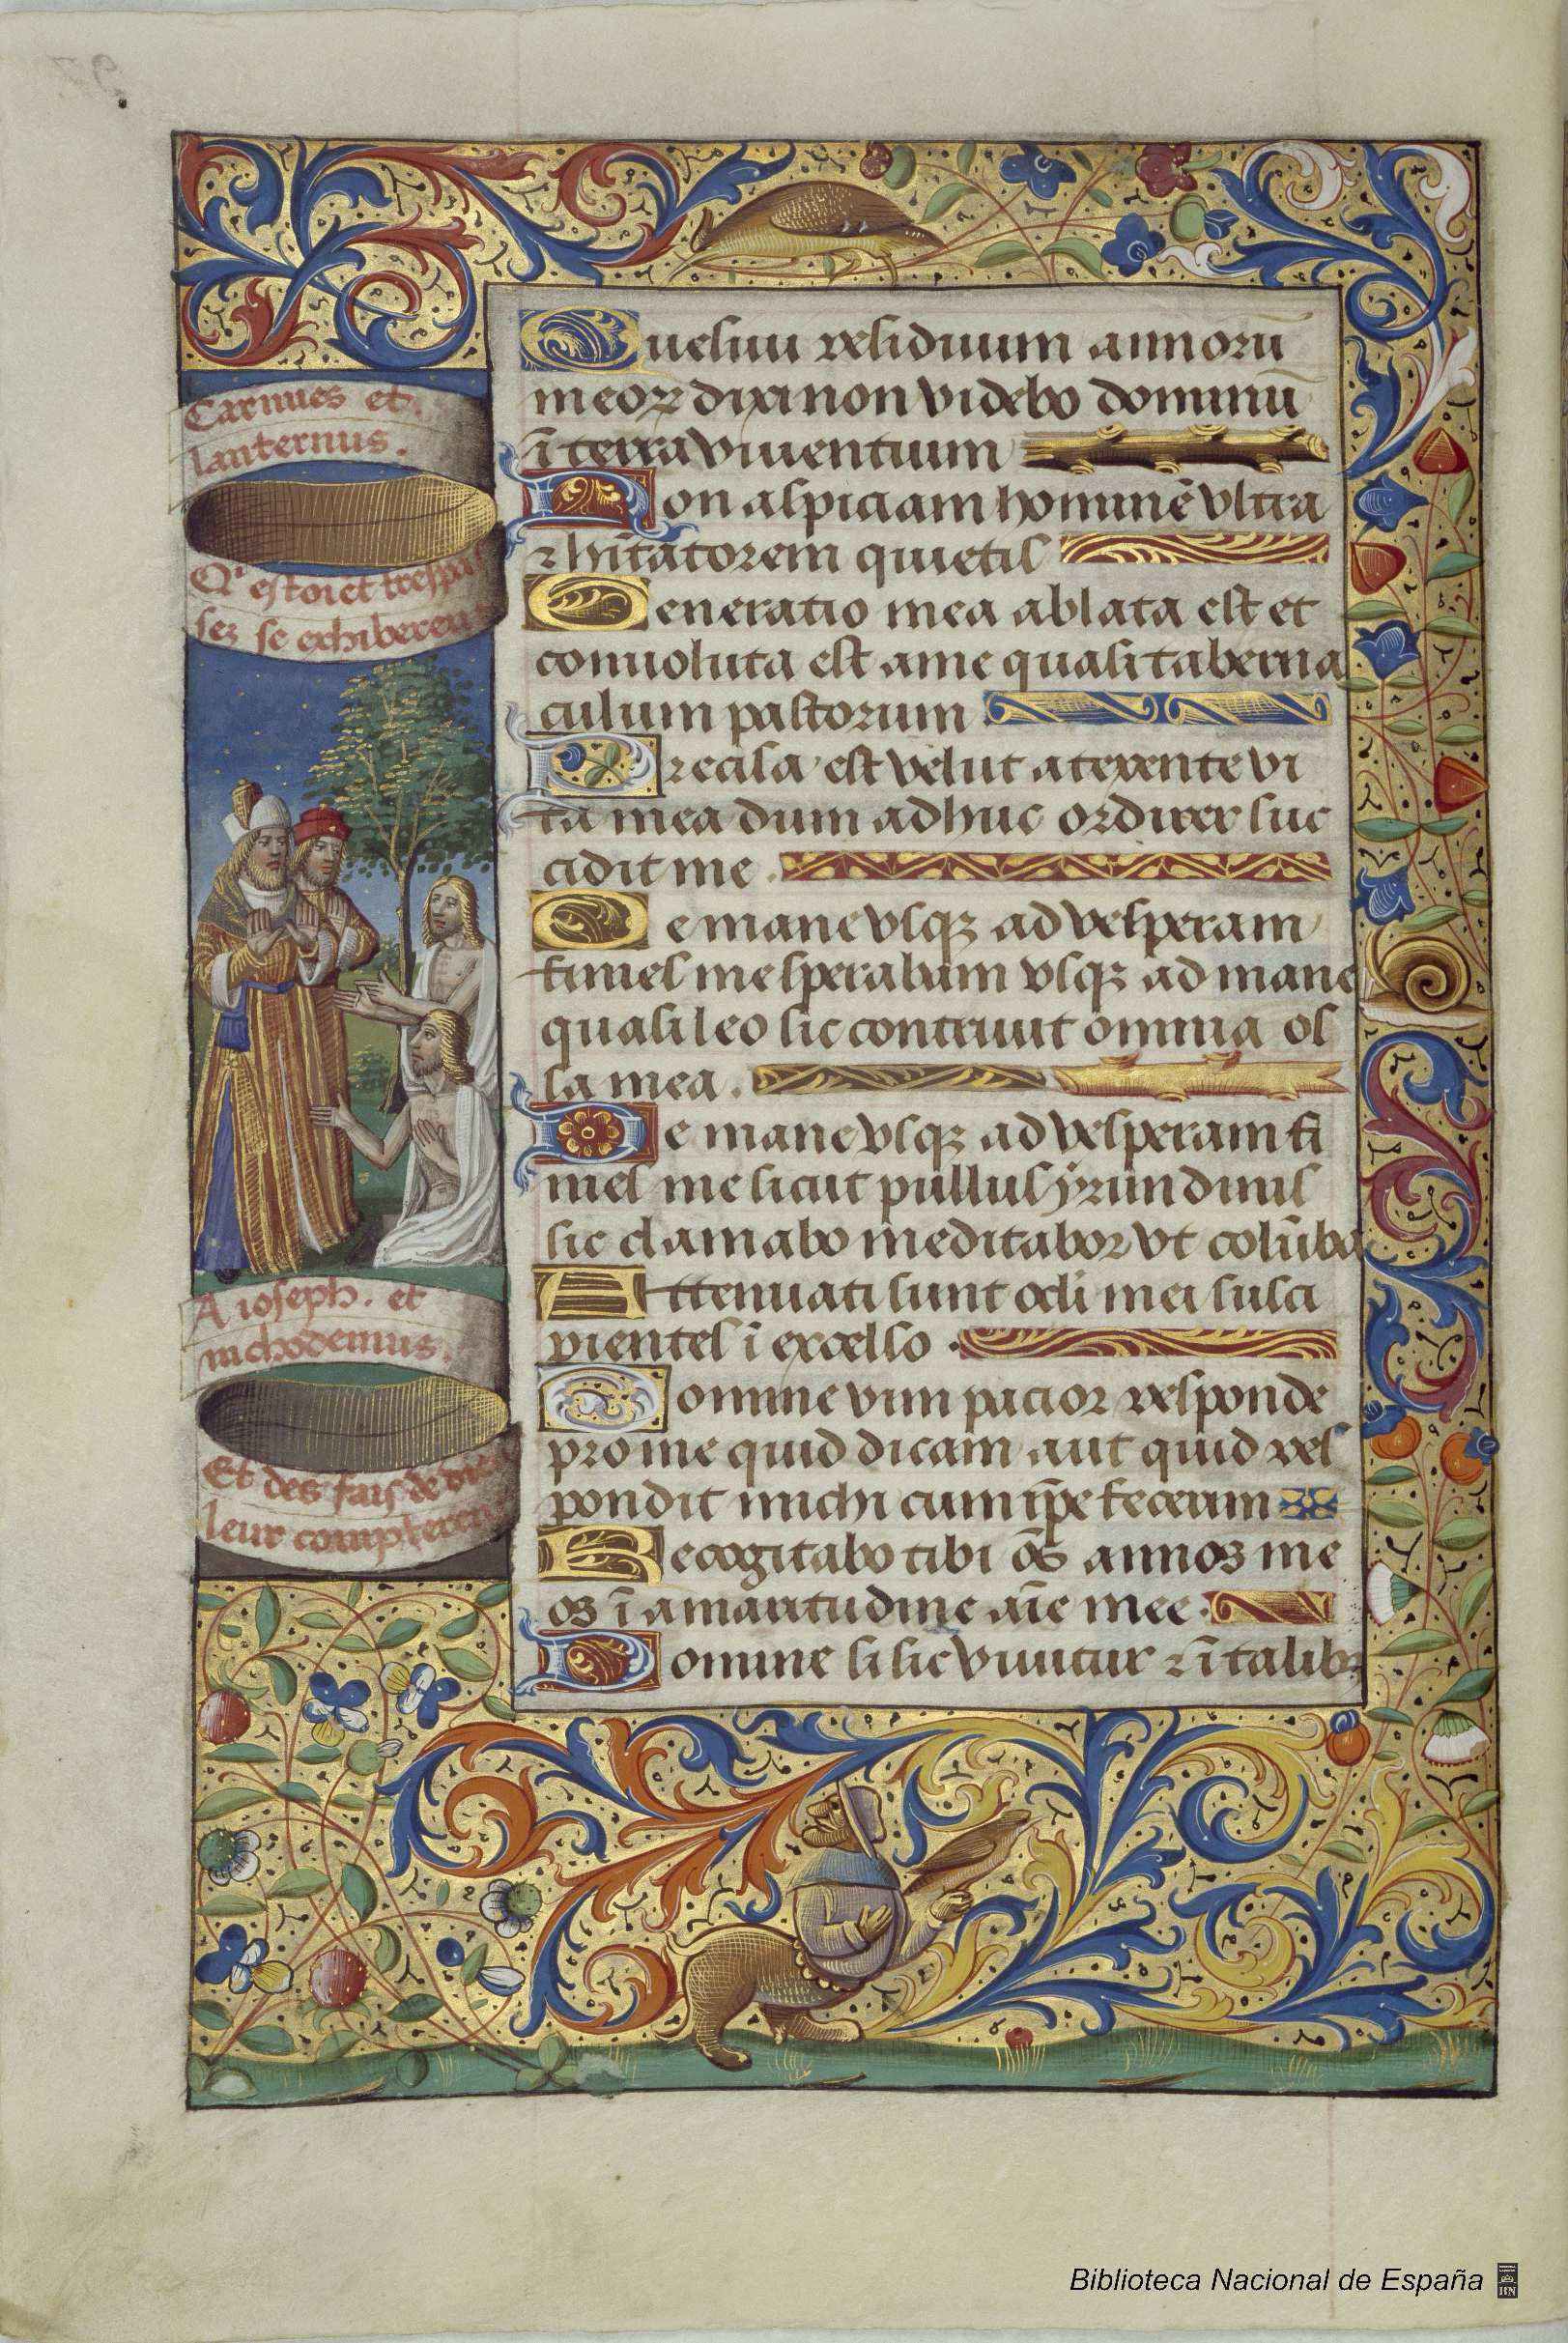 Carinues et
lanternus.
Q' estoiet trespas
sez se exhiberent
A ioseph. et
nichodemus.
Et des fais de
leur compterent
Quesiui residuum annorū
meoꝝ dixi non videbo dominū
ī terra viuentium
Non aspiciam hominē vltra
⁊ hītatorem quietis
Generatio mea ablata est et
conuoluta est a me quasi taberna
culum pastorum
Precisa est velut a texente vi
ta mea dum adhuc ordirer suc
cidit me.
De mane vsqꝫ ad vesperam
finies me sperabam vsqꝫ ad mane
quasi leo sic contriuit omnia os
sa mea.
De mane vsqꝫ ad vesperam fi
nies me sicut pullus yrundinis
sic clamabo meditabor vt colūba
Attenuati sunt ocli mei susci
pientes ī excelso.
Domine vim pacior responde
pro me quid dicam aut quid res
pondit michi cum ip̄e fecerim
Recogitabo tibi oēs annos me
os ī amaritudine aīe mee.
Domine si sic viuitur ⁊ ī talibꝫ
Biblioteca Nacional de España